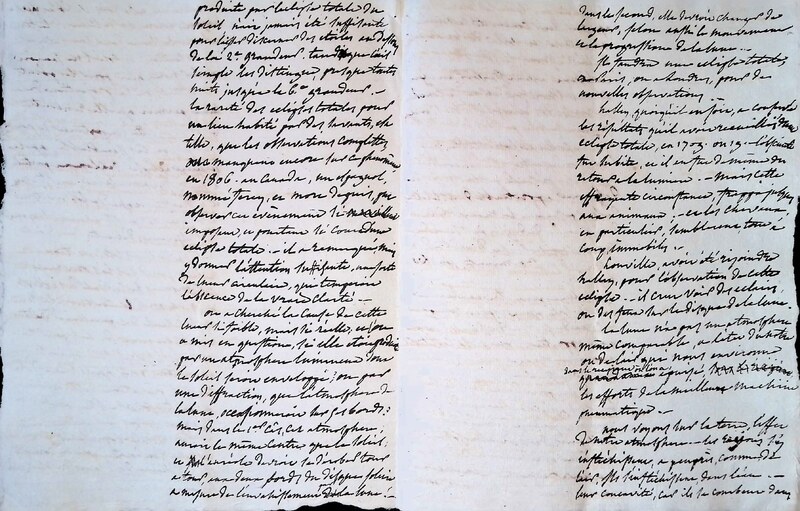 produite par l'eclipse totale du
soleil, n'aie jamais été suffisante
pour laisser discerner des etoiles au dessous
de la 2e. grandeur. tandis que l'œil
simple les distingue, presque toutes
nuits, jusques la 6e. grandeur. —
la rareté des eclipses totales pour
un lieu habité par des savants, est
telle, que les observations complettes
manquent encore sur ce phenomène
en 1806. en Canada, un espagnol,
nommé ferrer, est mort depuis, put
observer cet evenement si
imposant, et pourtant si court d'une
eclipse totale. — il a remarqué, sans
y donner l'attention suffisante, une sorte
de lueur circulaire, qui temperoit
l'absence de la vraie clarté —
on a cherché la cause de cette
lueur instable, mais si réelle, et l'on
a mis en question, si elle etoit produite
par un atmosphere lumineux dont
le soleil seroit enveloppé? ou par
une diffraction, que l'atmosphere de
la lune, occasionnerait sur ses bords?
mais dans le 1er. cas, cet atmosphere,
auroit le même centre que le soleil.
et de voir se derober tour
a tour, aux deux bords du disque solaire
a mesure de l'envahissement de la lune. —
dans le second, elle devroit changer de
largeur, selon aussi le mouvement
et la progression de la lune. —
Il faudra une eclipse totale,
a paris, ou a londres, pour de
nouvelles observations —
halley, quoiqu'il en soit, a comparé
les resultats qu'il avoit recueillis d'une
eclipse totale, en 1715. ou 19. — l'obscurité
fut subite, et il en fut de même du
retour a la lumiere. — mais cette
effrayante circonstance, frappe jusques
aux animaux; — et les chevaux,
en particulier, semblerent tout a
coup immobiles. —
Louville, avoit été rejoindre
halley, pour l'observation de cette
eclipse. — il crut voir des eclairs,
ou des feux sur le disque de la lune.
la lune n'a pas un atmosphere
même comparable, a celui de notre
ou de l'air qui nous environne
les efforts de la meilleure machine
pneumatique. —
nous voyons sur la terre, l'effet
de notre atmosphere — les rayons s'y
inflechissent, a peu près, comme de
l'air, ils s'inflechissent dans l'eau —
leur concavité, car ils se courbent dans